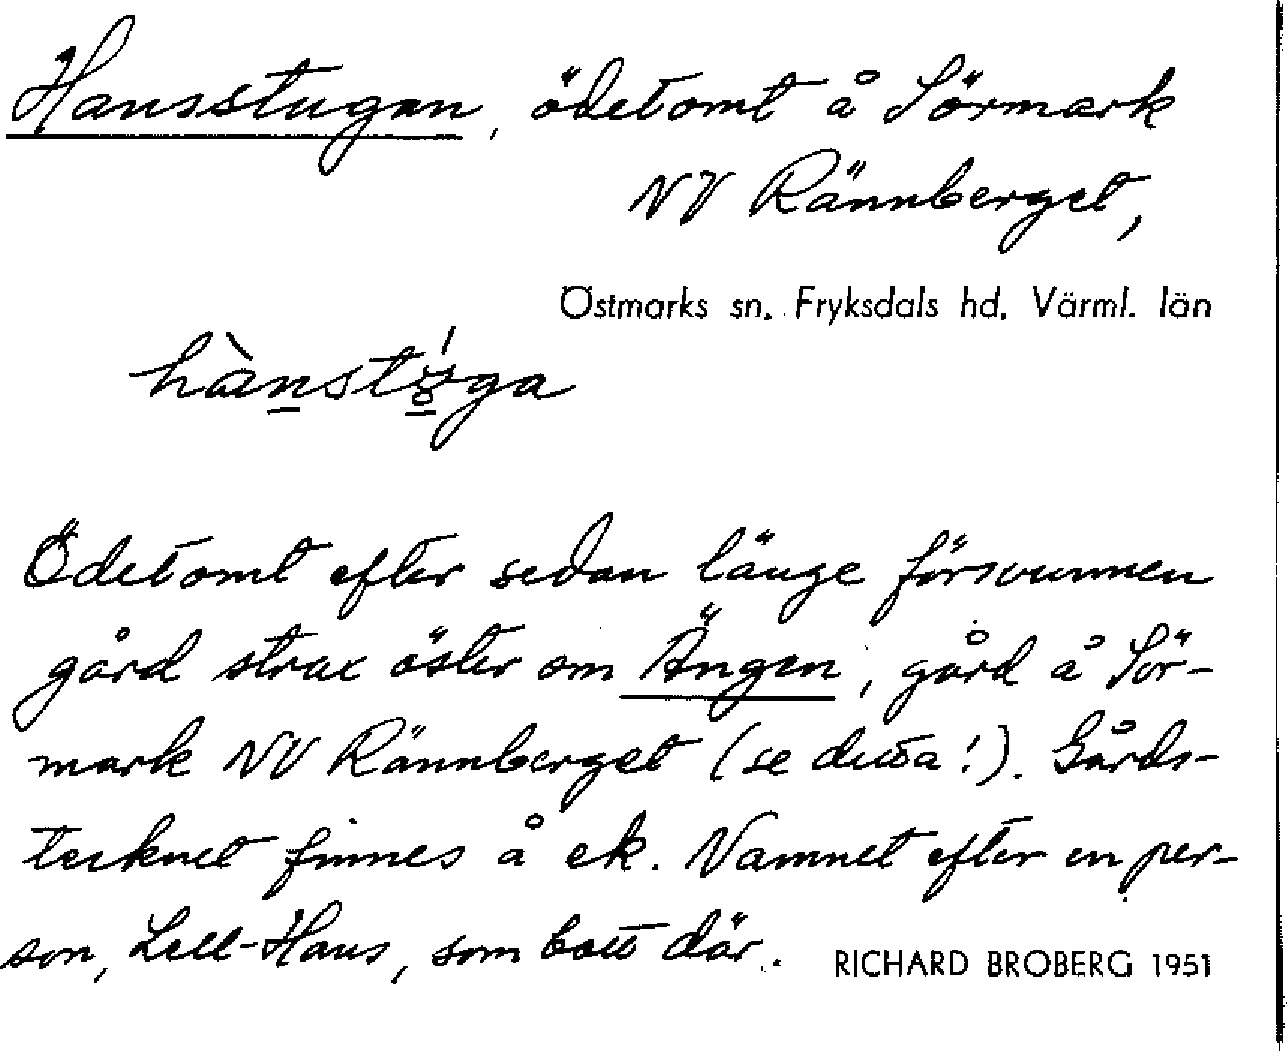 Hansstugan, ödetomt å Sörmark
NV Rännberget,
Östmarks sn. Fryksdals hd. Värml. län
Ödetomt efter sedan länge försvunnen
gård strax öster om Ängen, gård å Sör-
mark NV Rännberget (se detta!). Gårds-
tecknet finnes å ek. Namnet efter en per-
son, Lell-Hans, som bott där.
RICHARD BROBERG 1951